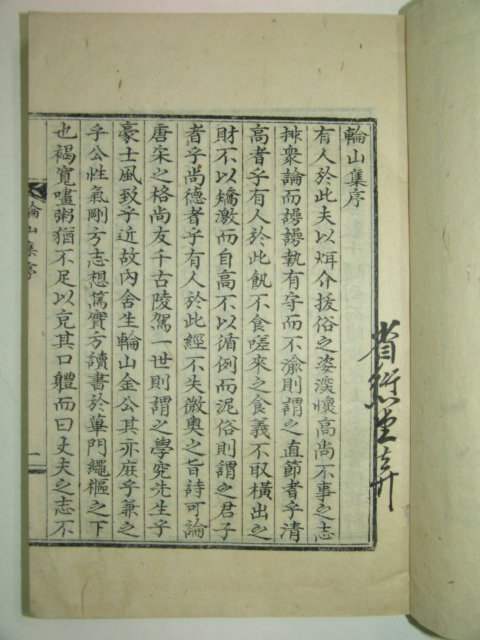 省愆堂
輪山集序
有人於此夫以介拔俗之姿懷高尚不事之志
排衆論而諤諤執有守而不渝則謂之直節者乎清
高者乎有人於此飢不食嗟來之食義不取橫出之
財不以矯激而自高不以循例而泥俗則謂之君子
者乎尚德者乎有人於此經不失微奧之旨詩可論
唐宋之格尚友千古陵駕一世則謂之學究先生乎
豪士風致乎近故內舍生輪山金公其亦庶乎兼之
乎公性氣剛方志想篤實方讀書於蓽門繩樞之下
也褐寬饘粥猶不足以充其口軆而曰丈夫之志不
輪山集序 一